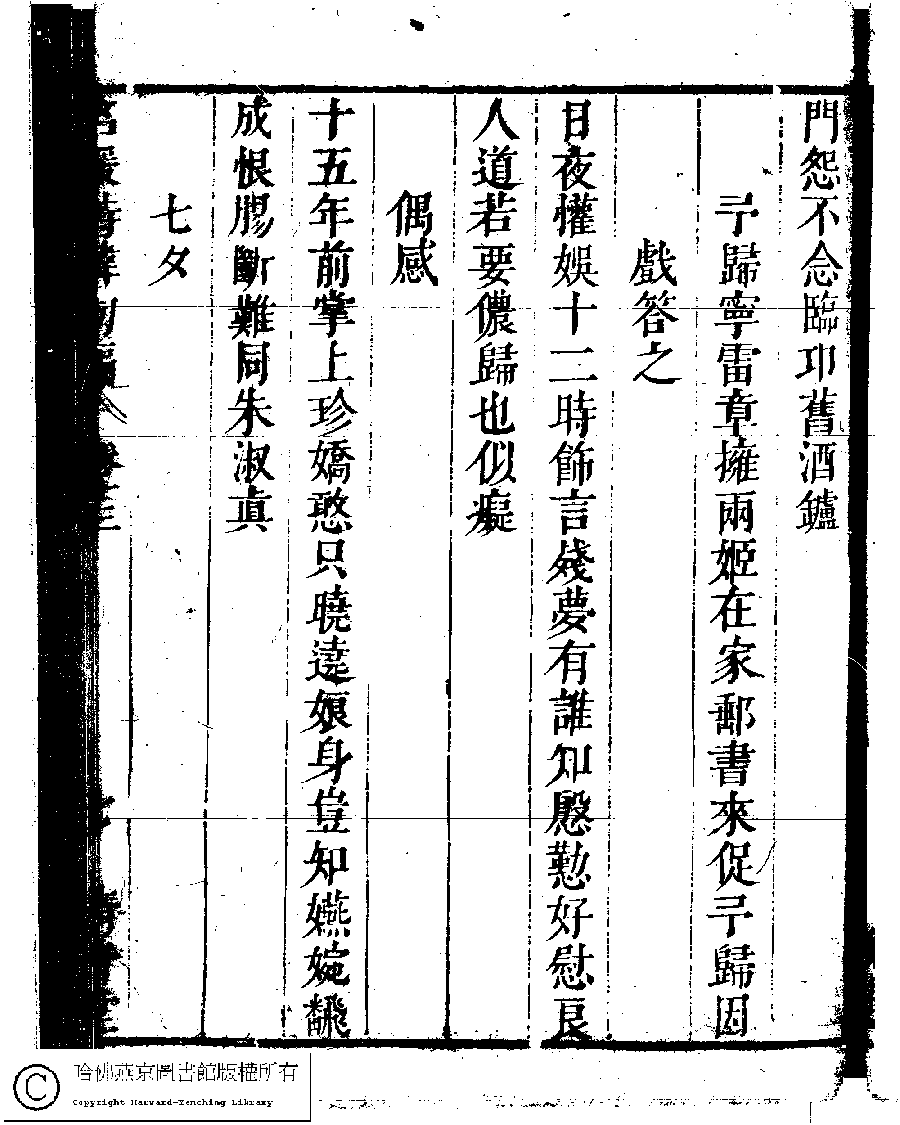 門怨不念臨邛舊酒鑪
予歸寧雷章擁兩姬在家郵書來促予歸因
戲答之
日夜懽娛十二時餙言殘夢有誰知慇懃好慰良
人道若要儂歸也似癡
偶感
十五年前掌上珍嬌憨只曉遶娘身豈知嬿婉飜
成恨膠斷難同朱淑真
七夕
名媛詩緯初編 卷十三
哈佛燕京圖書館版權所有
Copyright Harvard-Yenching Library